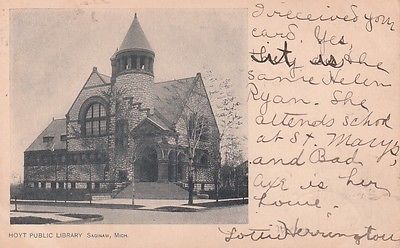 I received your
card. Yes,
it is the
same Helen
Ryan. She
attends school
at St. Marys
and Bad
Axe is her
home.
Lottie Herrington
HOYT PUBLIC LIBRARY SAGINAW, MICH.